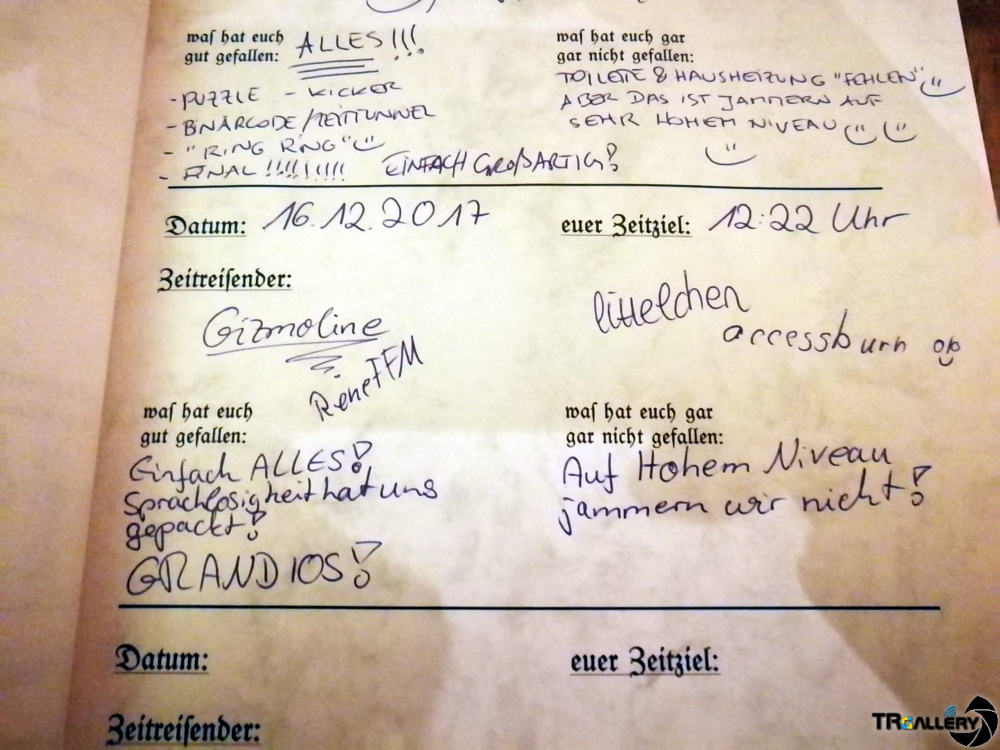 waſ hat euch
gut gefallen: ALLES!!!
- PUZZLE - KICKER
- BINÄRCODE/ZEITTUNNEL
- "RING RING"
- FINAL !!!!!!!!! EINFACH GROßARTIG!
waſ hat euch gar
gar nicht gefallen:
TOILETE & HAUSHEIZUNG "FEHLEN"
ABER DAS IST JAMMERN AUF
SEHR HOHEM NIVEAU
Datum: 16.12.2017 euer Zeitziel: 12:22 Uhr
Zeitreiſender:
Gizmoline
ReneFFM
littelchen
accessburn
waſ hat euch
gut gefallen:
Einfach ALLES!
Sprachlosigkeit hat uns
gepackt!
GRANDIOS!
waſ hat euch gar
gar nicht gefallen:
Auf Hohem Niveau
jammern wir nicht!
Datum: euer Zeitziel:
Zeitreiſender:
TRGALLERY